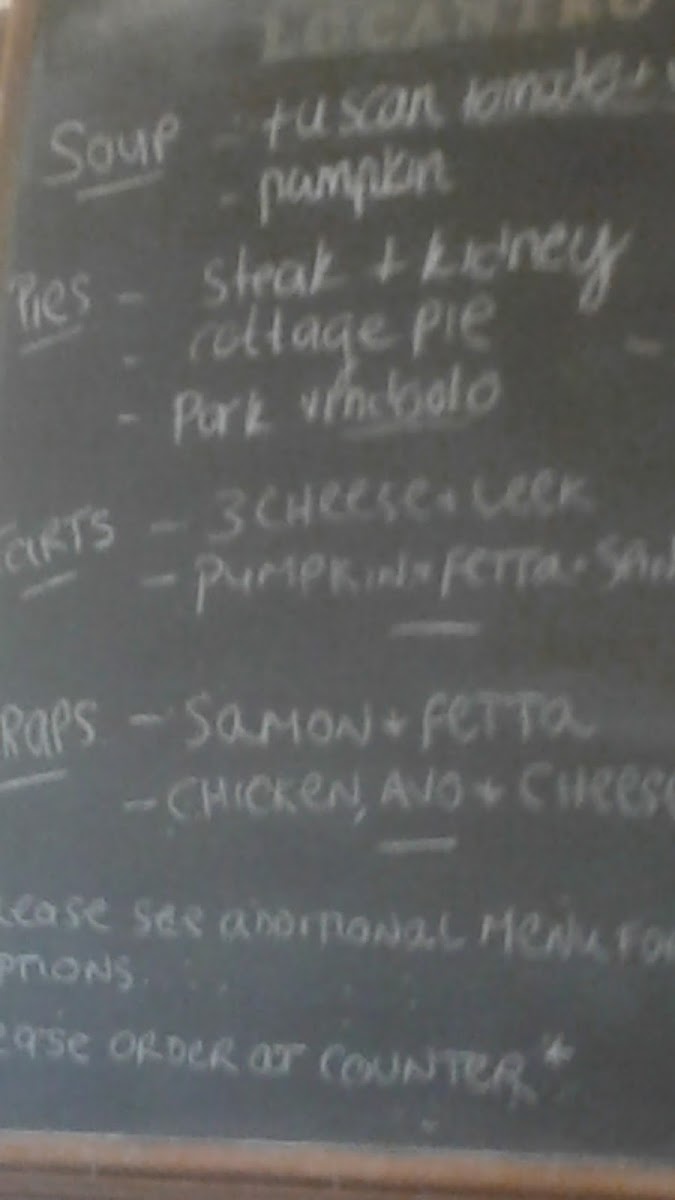 LOCANTRO
Soup - tuscan tomato +
- pumpkin
Pies - steak + kidney
- cottage pie -
- Pork vindaolo
TARTS - 3 CHEESE + LEEK
- PUMPKIN + FETTA + SAN
RAPS - SAMON + FETTA
- CHICKEN, AVO + CHEESE
LEASE SEE ADDITIONAL MENU FOR
PTIONS.
EASE ORDER AT COUNTER *